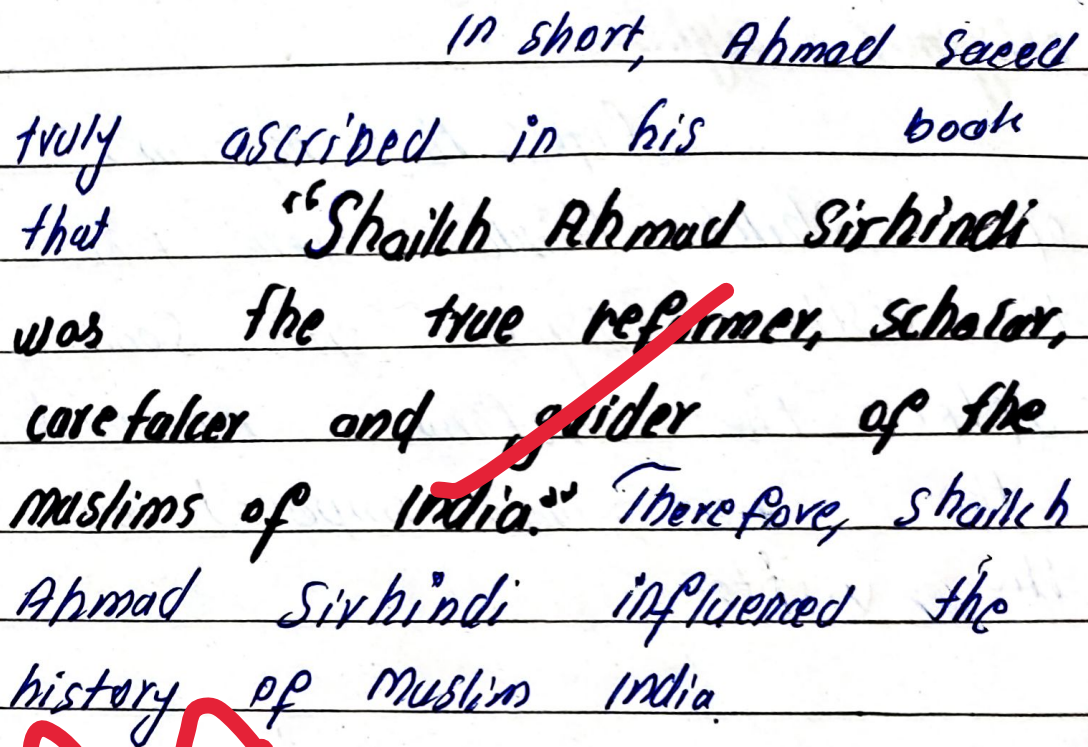 In short, Ahmad Saeed
truly ascribed in his book
that "Shaikh Ahmad Sirhindi
was the true reformer, scholar,
caretaker and guider of the
muslims of India." Therefore, Shaikh
Ahmad Sirhindi influenced the
history of Muslim India